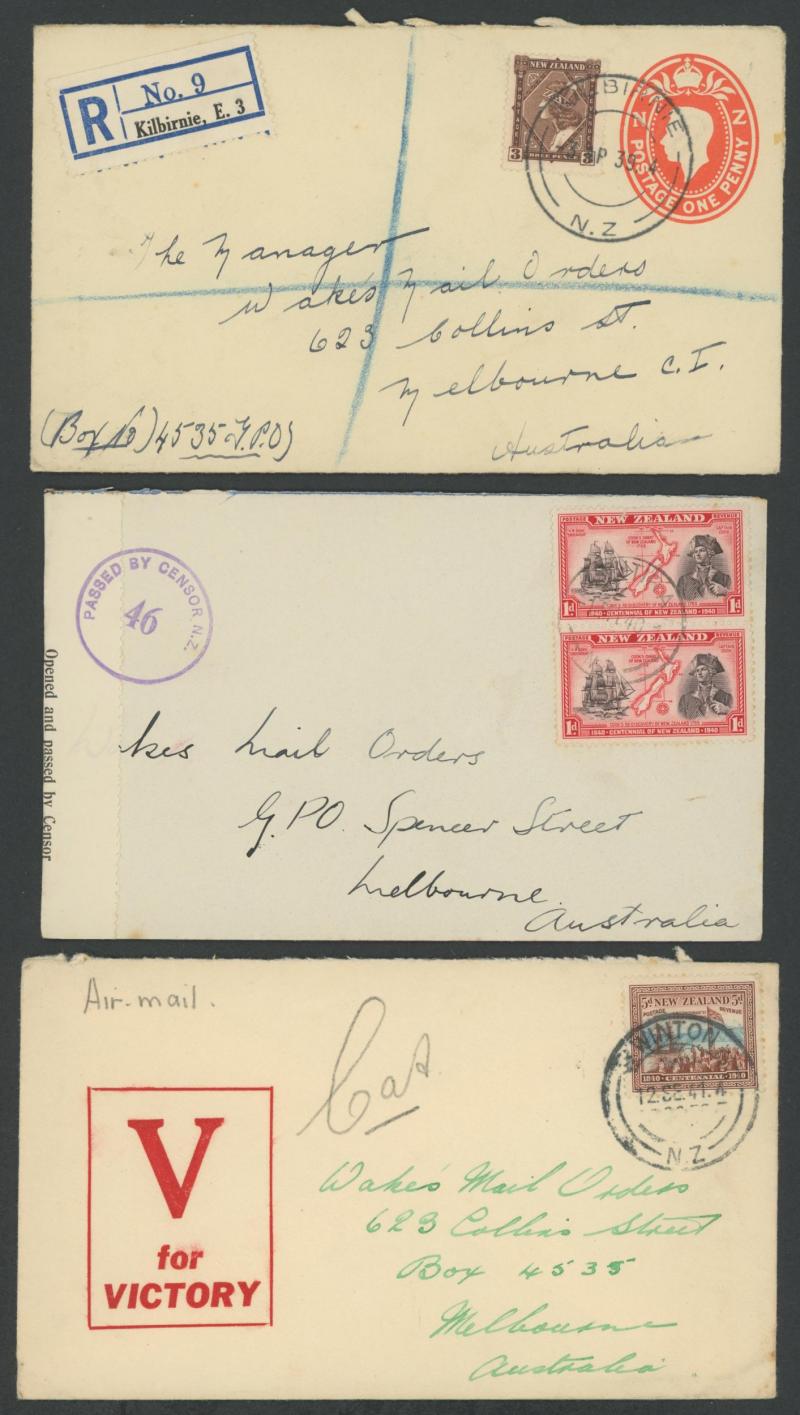 R
No. 9
Kilbirnie, E. 3
NEW ZEALAND
3 3
KILBIRNIE
39.4
N.Z
N Z
POSTAGE ONE PENNY
The Manager
Wake's Mail Orders
623 Collins St.
Melbourne C.I.
Australia
(Box No) 4535 G.P.O)
PASSED BY CENSOR N.Z.
46
Opened and passed by Censor
POSTAGE REVENUE
NEW ZEALAND
1d 1d
1840 - CENTENNIAL OF NEW ZEALAND - 1940
POSTAGE REVENUE
NEW ZEALAND
1d 1d
1840 - CENTENNIAL OF NEW ZEALAND - 1940
Wakes Mail Orders
G.P.O. Spencer Street
Melbourne
Australia
Air-mail.
5d NEW ZEALAND 5d
POSTAGE REVENUE
1840 - CENTENNIAL - 1940
WINTON
12 SE 41. 4
N.Z
V
for
VICTORY
Wake's Mail Orders
623 Collins Street
Box 4535
Melbourne
Australia.